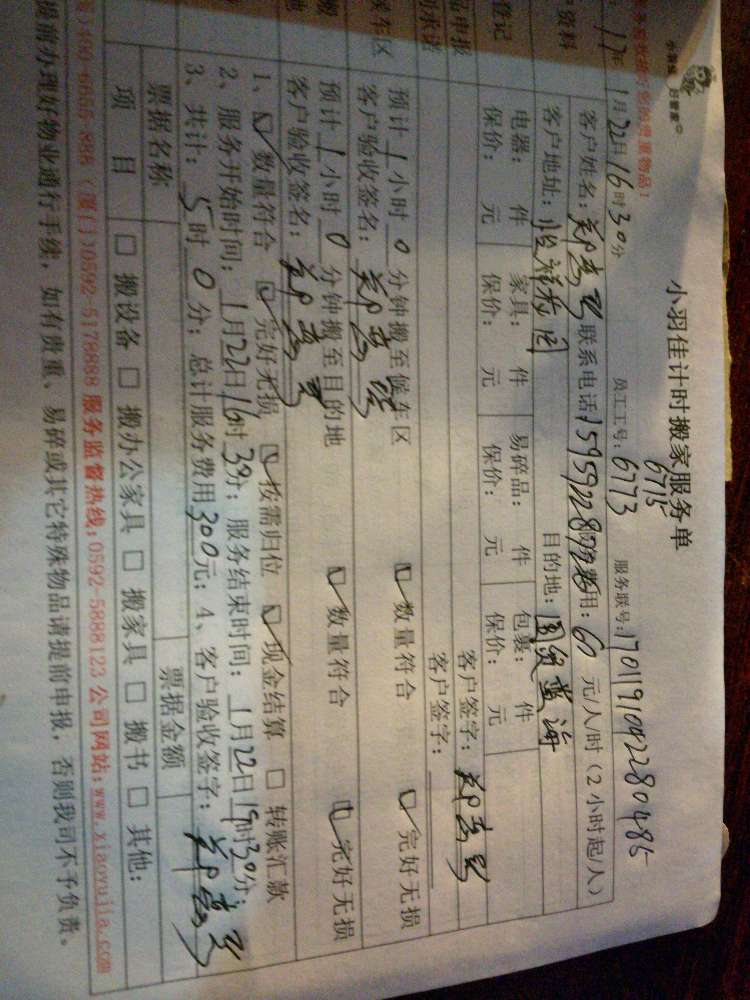 小羽佳 好管家
小羽佳计时搬家服务单
6715
员工工号: 6773 服务联号: 1701191042280485
17年 1月22日16时30分
客户资料 客户姓名: 联系电话 用: 60 元/人/时 (2小时起/人)
客户地址: 目的地:
登记 电器: 件 家具: 件 易碎品: 件 包裹: 件
保价: 元 保价: 元 保价: 元 保价: 元
品申报 客户签字:
客户签字:
候车区 预计 1 小时 0 分钟搬至候车区 数量符合 完好无损
客户验收签名:
预计 1 小时 0 分钟搬至目的地 数量符合 完好无损
客户验收签名:
1、 数量符合 完好无损 按需归位 现金结算 转账汇款
2、服务开始时间: 1月22日16时30分; 服务结束时间: 1月22日19时30分;
3、共计: 5时 0 分; 总计服务费用300元; 4、客户验收签字:
票据名称 票据金额
项 目 搬设备 搬办公家具 搬家具 搬书 其他:
400-6855-886 (厦门)0592-5178888 服务监督热线:0592-5888123 公司网站:www.xiaoyujia.com
提前办理好物业通行手续, 如有贵重、易碎或其它特殊物品请提前申报, 否则我司不予负责。